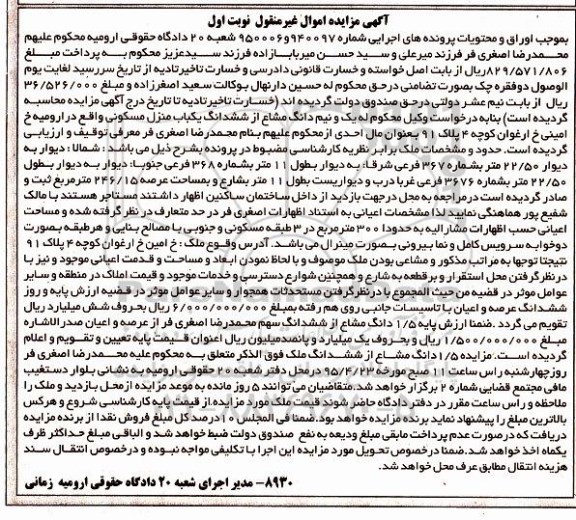 آگهی مزایده اموال غیرمنقول نوبت اول
بموجب اوراق و محتویات پرونده های اجرایی شماره ۹۴۰۰۹۷و۹۵۰۰۰۶ شعبه ۲۰ دادگاه حقوقی ارومیه محکوم علیهم
محمدرضا اصغری فر فرزند میرعلی و سید حسن میربابازاده فرزند سیدعزیز محکوم به پرداخت مبلغ
۸۲۹/۵۷۱/۸۰۶ریال از بابت اصل خواسته و خسارت قانونی دادرسی و خسارت تاخیرتادیه از تاریخ سررسید لغایت یوم
الوصول دوفقره چک بصورت تضامنی درحق محکوم له حسین دارنهال بوکالت سعید اصغرزاده و مبلغ ۳۶/۵۲۶/۰۰۰
ریال از بابت نیم عشر دولتی درحق صندوق دولت گردیده اند (خسارت تاخیرتادیه تا تاریخ درج آگهی مزایده محاسبه
گردیده است) بنابه درخواست وکیل محکوم له یک و نیم دانگ مشاع از ششدانگ یکباب منزل مسکونی واقع در ارومیه خ
امینی خ ارغوان کوچه ۴ پلاک ۹۱ بعنوان مال احدی ازمحکوم علیهم بنام محمدرضا اصغری فر معرفی توقیف و ارزیابی
گردیده است. حدود و مشخصات ملک برابر نظریه کارشناسی مضبوط در پرونده بشرح ذیل می باشد: شمالا: دیوار به
دیوار ۲۲/۵۰ متر بشماره ۳۶۷ فرعی شرقا: به دیوار بطول ۱۱ متر بشماره ۳۶۸ فرعی جنوبا: دیوار به دیوار بطول
۲۲/۵۰ متر بشماره ۳۶۷۶ فرعی غربا درب و دیواریست بطول ۱۱ متر بشارع و بمساحت عرصه ۲۴۶/۱۵ مترمربع ثبت و
صادر گردیده است در مراجعه به محل درجهت بازدید از داخل ساختمان ساکنین اظهار داشتند مستاجر هستند با مالک
شفیع پور هماهنگی نمایید لذا مشخصات اعیانی به استناد اظهارات اصغری فر در حد متعارف در نظر گرفته شده و مساحت
اعیانی حسب اظهارات مشارالیه به حدودا ۳۰۰ مترمربع در ۳ طبقه مسکونی و جنوبی با مصالح بنایی و هرطبقه بصورت
دوخوابه سرویس کامل و نما بیرونی بصورت مینرال می باشد. آدرس وقوع ملک: خ امین خ ارغوان کوچه ۴ پلاک ۹۱
نتیجتا توجها به مراتب مذکور و مشاعی بودن ملک موصوف و با لحاظ نمودن ابعاد و مساحت و قدمت اعیانی موجود و نیز با
درنظرگرفتن محل استقرار و برقطعه به شارع و همچنین شوارع دسترسی و خدمات موجود و قیمت املاک در منطقه و سایر
عوامل موثر در قضیه من حیث المجموع با درنظرگرفتن مستحدثات همجوار و سایر عوامل موثر در قضیه ارزش پایه و روز
ششدانگ عرصه و اعیان با تاسیسات جانبی روی هم رفته بمبلغ ۶/۰۰۰/۰۰۰/۰۰۰ ریال بحروف شش میلیارد ریال
تقویم می گردد. ضمنا ارزش پایه ۱/۵ دانگ مشاع از ششدانگ سهم محمدرضا اصغری فر از عرصه و اعیان صدرالاشاره
بمبلغ ۱/۵۰۰/۰۰۰/۰۰۰ ریال و بحروف یک میلیارد و پانصدمیلیون ریال اعنوان قیمت پایه تعیین و تقویم و اعلام
گردیده است. مزایده ۱/۵ دانگ مشاع از ششدانگ ملک فوق الذکر متعلق به محکوم علیه محمدرضا اصغری فر
روز چهارشنبه راس ساعت ۱۱ صبح مورخه ۹۵/۴/۲۳ در محل دفتر شعبه ۲۰ حقوقی ارومیه به نشانی بلوار دستغیب
مافی مجتمع قضایی شماره ۲ برگزار خواهد شد. متقاضیان می توانند ۵ روز مانده به موعد مزایده ازمحل بازدید و ملک را
ملاحظه و راس ساعت مقرر در دفتر دادگاه حاضر شوند قیمت ملک مورد مزایده از قیمت پایه کارشناسی شروع و هرکس
بالاترین مبلغ را پیشنهاد نماید برنده مزایده خواهد بود. ضمنا فی المجلس ۱۰درصد کل مبلغ فروش نقدا از برنده مزایده
دریافت که درصورت عدم پرداخت مابقی مبلغ ودیعه به نفع صندوق دولت ضبط خواهد شد و الباقی مبلغ حداکثر ظرف
یکماه اخذ خواهد شد. ضمنا درخصوص تحویل مورد مزایده این اجرا با تکلیفی مواجه نبوده و درخصوص انتقال سند
هزینه انتقال مطابق عرف محل خواهد شد.
۸۹۳۰- مدیر اجرای شعبه ۲۰ دادگاه حقوقی ارومیه زمانی